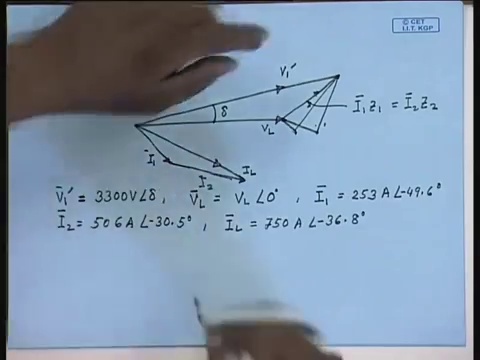 © CET
I.I.T. KGP
V₁′
δ
V_L
Ī₁Z₁ = Ī₂Z₂
Ī₁
Ī₂
I_L
V̄₁′ = 3300V∠δ , V̄_L = V_L∠0° , Ī₁ = 253A∠-49.6°
Ī₂ = 506A∠-30.5° , Ī_L = 750A∠-36.8°